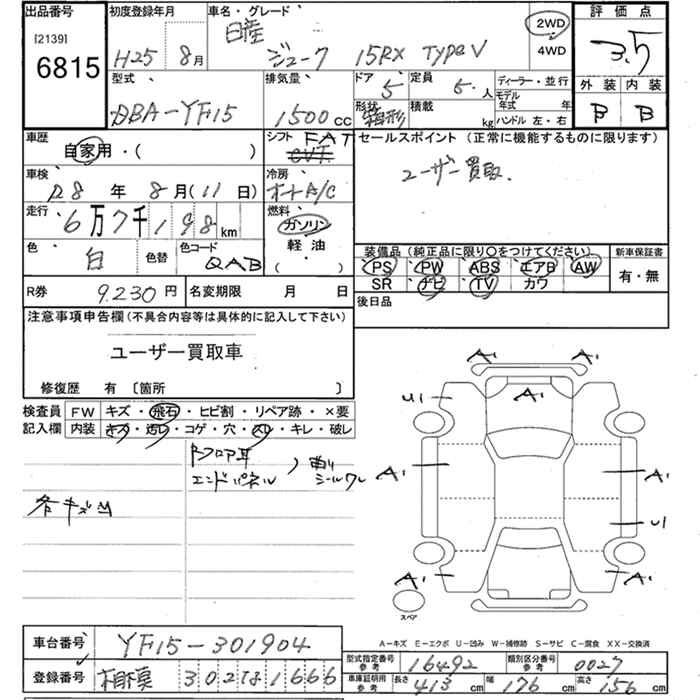 出品番号 初度登録年月 車名・グレード 評価点
[2139] 日産 2WD
6815 H25 8月 ジューク 15RX TypeV 4WD 3.5
型式 排気量 ドア 定員 ディーラー・並行 外装 内装
DBA-YF15 1500cc 5 5人 モデル年式 年 B B
形状 箱形 積載 kg ハンドル 左・右
車歴 シフト FAT セールスポイント (正常に機能するものに限ります)
自家用・( ) CVT ユーザー買取
車検 冷房
28年 8月(11日) オートA/C
走行 燃料
6万7千198km ガソリン
色 色替 色コード 軽油 装備品 (純正品に限り○をつけてください) 新車保証書
白 QAB ( ) PS PW ABS エアB AW 有・無
SR ナビ TV カワ
R券 9.230円 名変期限 月 日 後日品
注意事項申告欄(不具合内容等は具体的に記入して下さい)
ユーザー買取車
修復歴 有 〔箇所 〕
検査員 FW キズ・飛石・ヒビ割・リペア跡・×要
記入欄 内装 キズ・汚レ・コゲ・穴・スレ・キレ・破レ
Bフロア耳
エンドパネル 曲り シールワレ
各キズ凹
A1 A1
A1
U1
A1 A1 A1
U1
A1 A1
スペア
A-キズ E-エクボ U-凹み W-補修跡 S-サビ C-腐食 XX-交換済
車台番号 YF15-301904
型式指定番号 参考 16492 類別区分番号 参考 0027
登録番号 相模 302す1666
車庫証明用 参考 長さ 413cm 幅 176cm 高さ 156cm